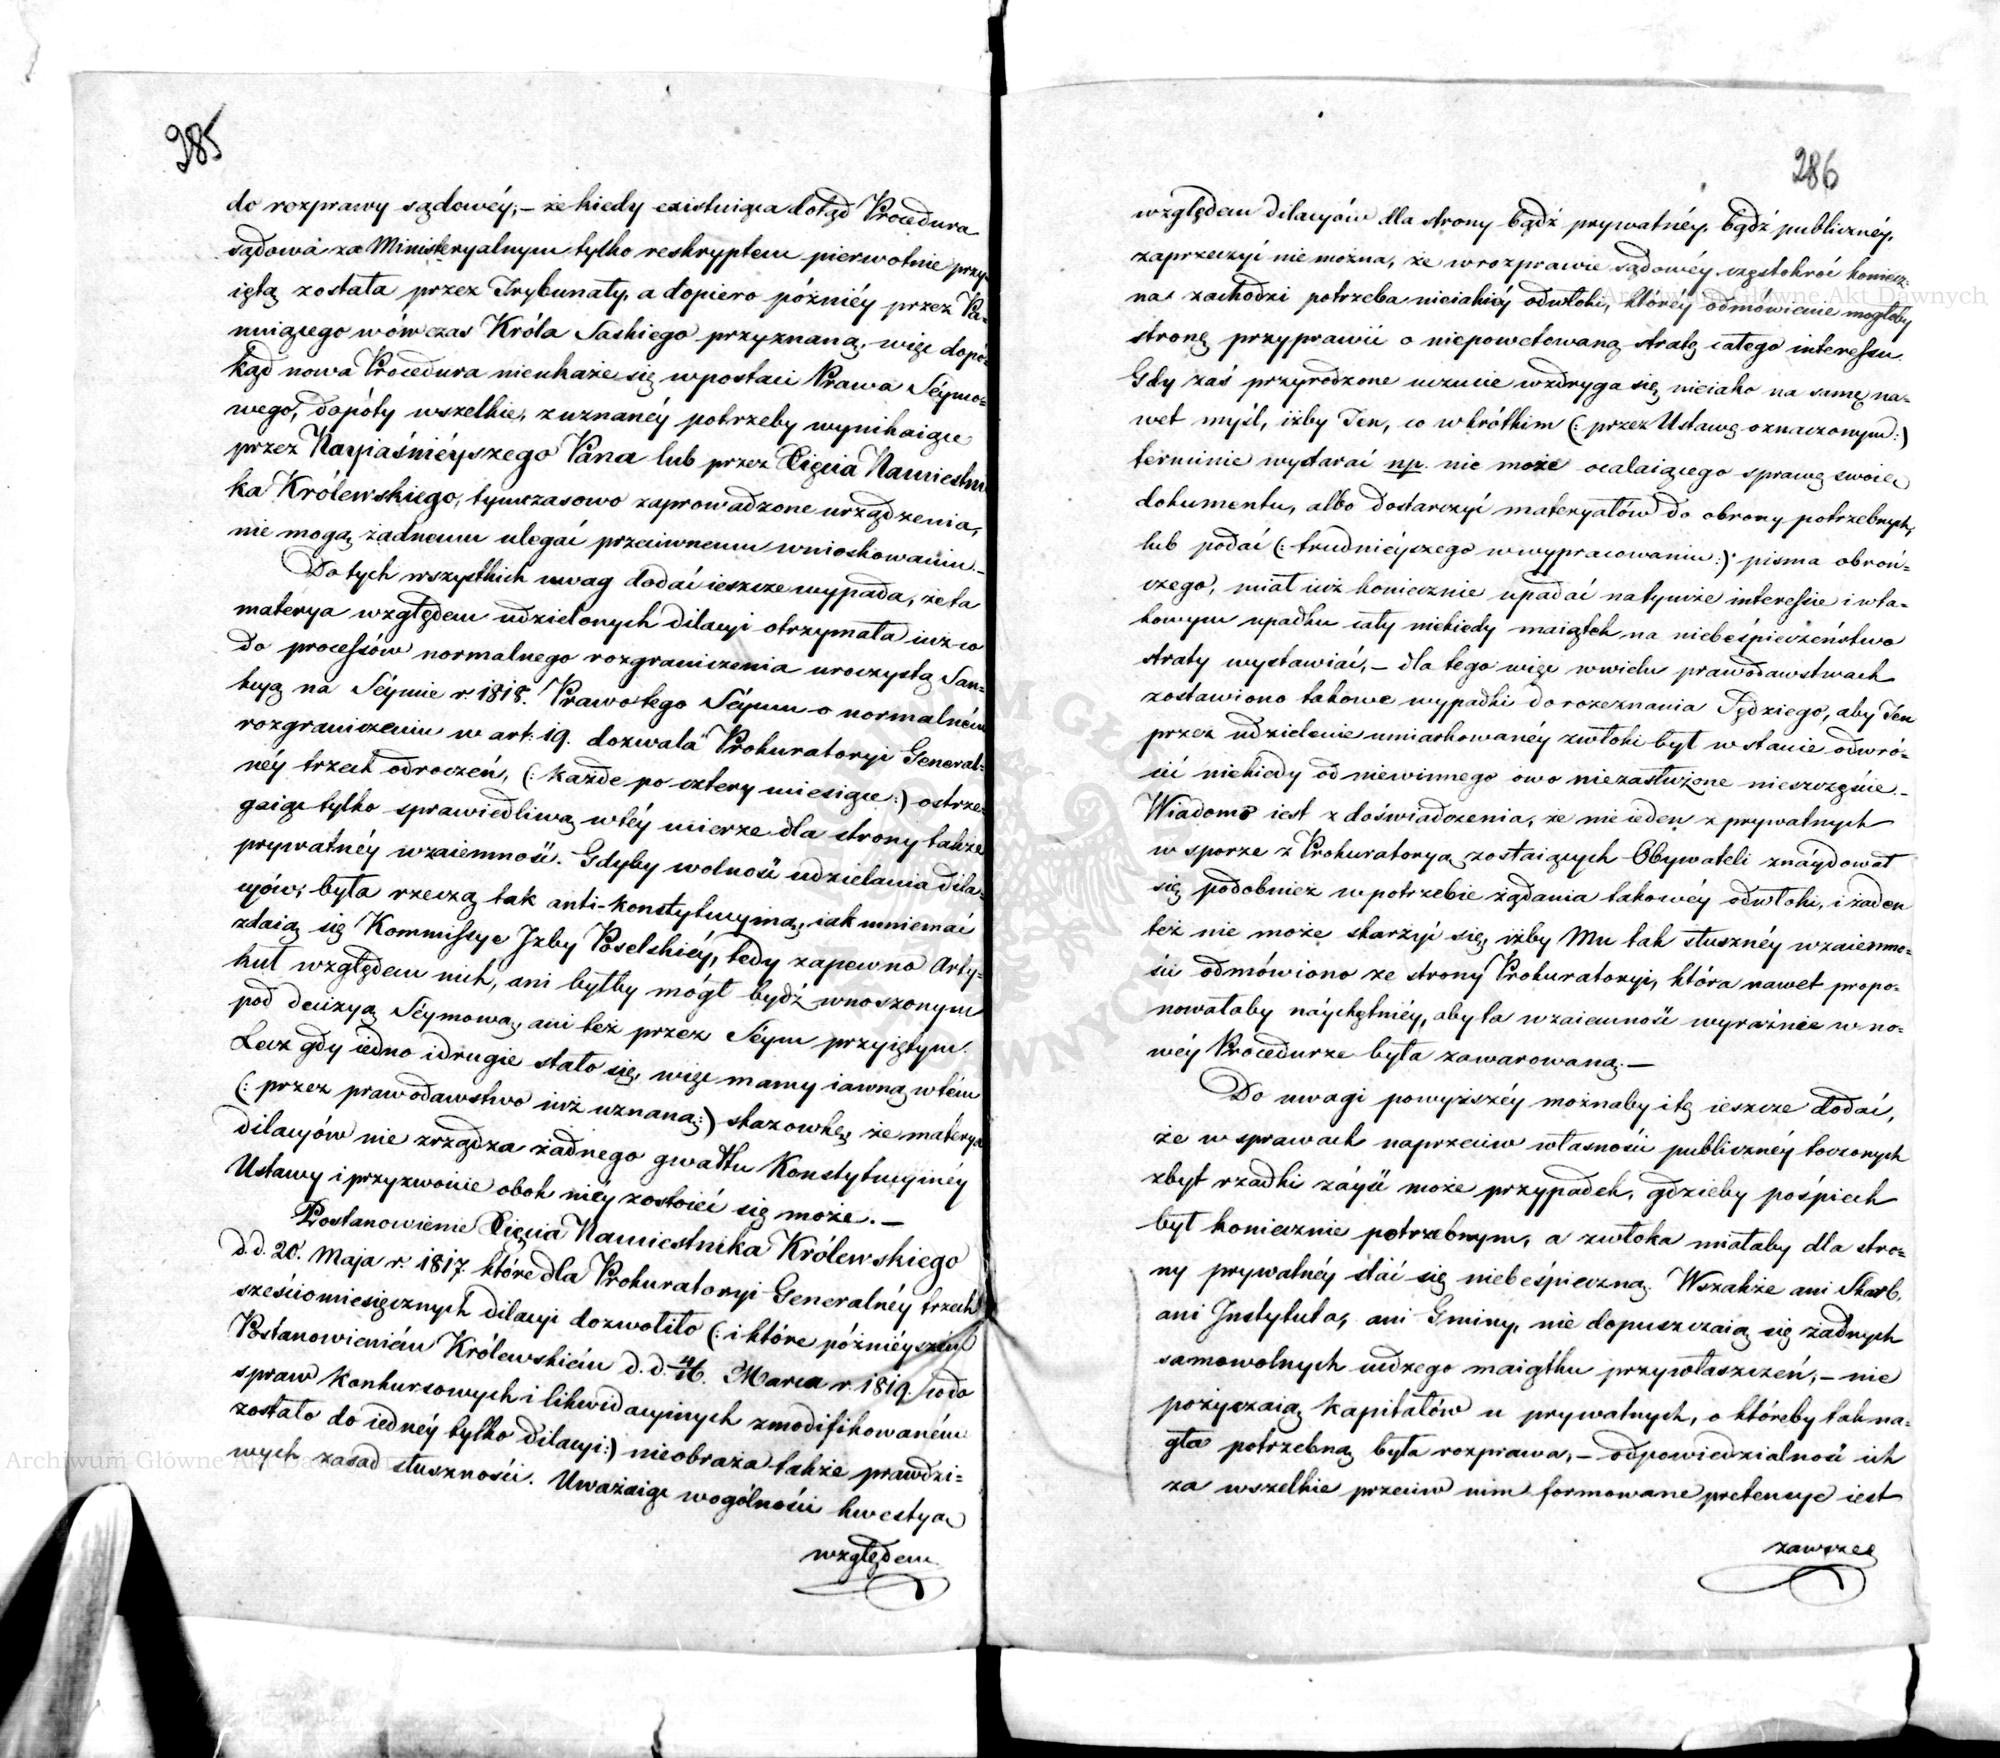 285
do rozprawy sądowéy; – że kiedy existuiąca dotąd Procedura
sądowa za Ministeryalnym tylko reskryptem pierwotnie przy-
iętą została przez Trybunały, a dopiero późniéy przez Pa-
nuiącego wówczas Króla Saskiego przyznaną, więc dopó-
kąd nowa Procedura nieukaże się w postaci Prawa Séymo-
wego, dopóty wszelkie, z uznanéy potrzeby wynikaiące
przez Nayiaśnieyszego Pana lub przez Xięcia Namiestni
ka Królewskiego, tymczasowo zaprowadzone urządzenia,
nie mogą żadnemu ulegać przeciwnemu wnioskowaniu. –
Do tych wszystkich uwag dodać ieszcze wypada, że ta
materya względem udzielonych dilacyi otrzymała iuż co
do processów normalnego rozgraniczenia uroczystą San-
kcyą na Séymie r. 1818. Prawo tego Séymu o normalném
rozgraniczeniu w art: 19. dozwala Prokuratoryi General-
néy trzech odroczeń, (: każde po cztery miesiące :) ostrze-
gaiąc tylko sprawiedliwą w téy mierze dla strony także
prywatnéy wzaiemność. Gdyby wolność udzielania dila-
cyów, była rzeczą tak anti-konstytucyiną, iak mniemać
zdaią się Kommissye Izby Poselskiéy, tedy zapewno Arty-
kuł względem nich, ani byłby mógł bydź wnoszonym
pod decyzyą Séymową, ani też przez Séym przyiętym.
Lecz gdy iedno i drugie stało się, więc mamy iawną w tém
(: przez prawodawstwo iuż uznaną :) skazowkę, że materya
dilacyów nie zrządza żadnego gwałtu Konstytucyinéy
Ustawy i przyzwoicie obok niéy zostać się może. –
Postanowienie Xięcia Namiestnika Królewskiego
d. d. 20. Maja r. 1817. które dla Prokuratoryi Generalnéy trzech
sześciomiesięcznych dilacyi dozwoliło (: i które późniéyszém
Postanowieniem Królewskiém d. d. 4/16. Marca r. 1819. co do
spraw konkursowych i likwidacyinych zmodifikowaném
zostało do iednéy tylko dilacyi :) nieobraża także prawdzi-
wych zasad słuszności. Uważaiąc wogólności kwestyą
względem
286
względem dilacyów dla strony bądź prywatnéy, bądź publicznéy,
zaprzeczyć nie można, że w rozprawie sądowéy częstokroć koniecz-
na zachodzi potrzeba nieiakiéy odwłoki, któréy odmówienie mogłoby
stronę przyprawić o niepowetowaną stratę całego interessu.
Gdy zaś przyrodzone uczucie wzdryga się nieiako na samę na-
wet myśl, iżby Ten, co w krótkim (: przez Ustawę oznaczonym :)
terminie wystarać np. nie może ocalaiącego sprawę swoię
dokumentu, albo dostarczyć materyałów do obrony potrzebnych,
lub podać (: trudnieyszego w wypracowaniu :) pisma obroń-
czego, miał iuż koniecznie upadać na tymże interessie i w ta-
kowym upadku cały niekiedy maiątek na niebespieczeństwo
straty wystawiać, – dla tego więc w wielu prawodawstwach
zostawiono takowe wypadki do rozeznania Sędziego, aby Ten
przez udzielenie umiarkowanéy zwłoki był w stanie odwró-
cić niekiedy od niewinnego owo niezasłużone nieszczęście. –
Wiadomo iest z doświadczenia, że nieieden z prywatnych
w sporze z Prokuratoryą zostaiących Obywateli znáydował
się podobnież w potrzebie żądania takowéy odwłoki, i żaden
też nie może skarżyć się, iżby Mu tak słusznéy wzaiemno-
ści odmówiono ze strony Prokuratoryi, która nawet propo-
nowałaby náychętniéy, aby ta wzaiemność wyraźnie w no-
wéy Procedurze była zawarowaną. –
Do uwagi powyższéy możnaby i tę ieszcze dodać,
że w sprawach naprzeciw własności publicznéy toczonych
zbyt rzadki záyść może przypadek, gdzieby pośpiech
był koniecznie potrzebnym, a zwłoka miałaby dla stro-
ny prywatnéy stać się niebespieczną. Wszakże ani Skarb,
ani Instytuta, ani Gminy, nie dopuszczaią się żadnych
samowolnych cudzego maiątku przywłaszczeń, – nie
pożyczaią kapitałów u prywatnych, o któreby tak na-
gła potrzebną była rozprawa, – odpowiedzialność ich
za wszelkie przeciw nim formowane pretensye iest
zawsze